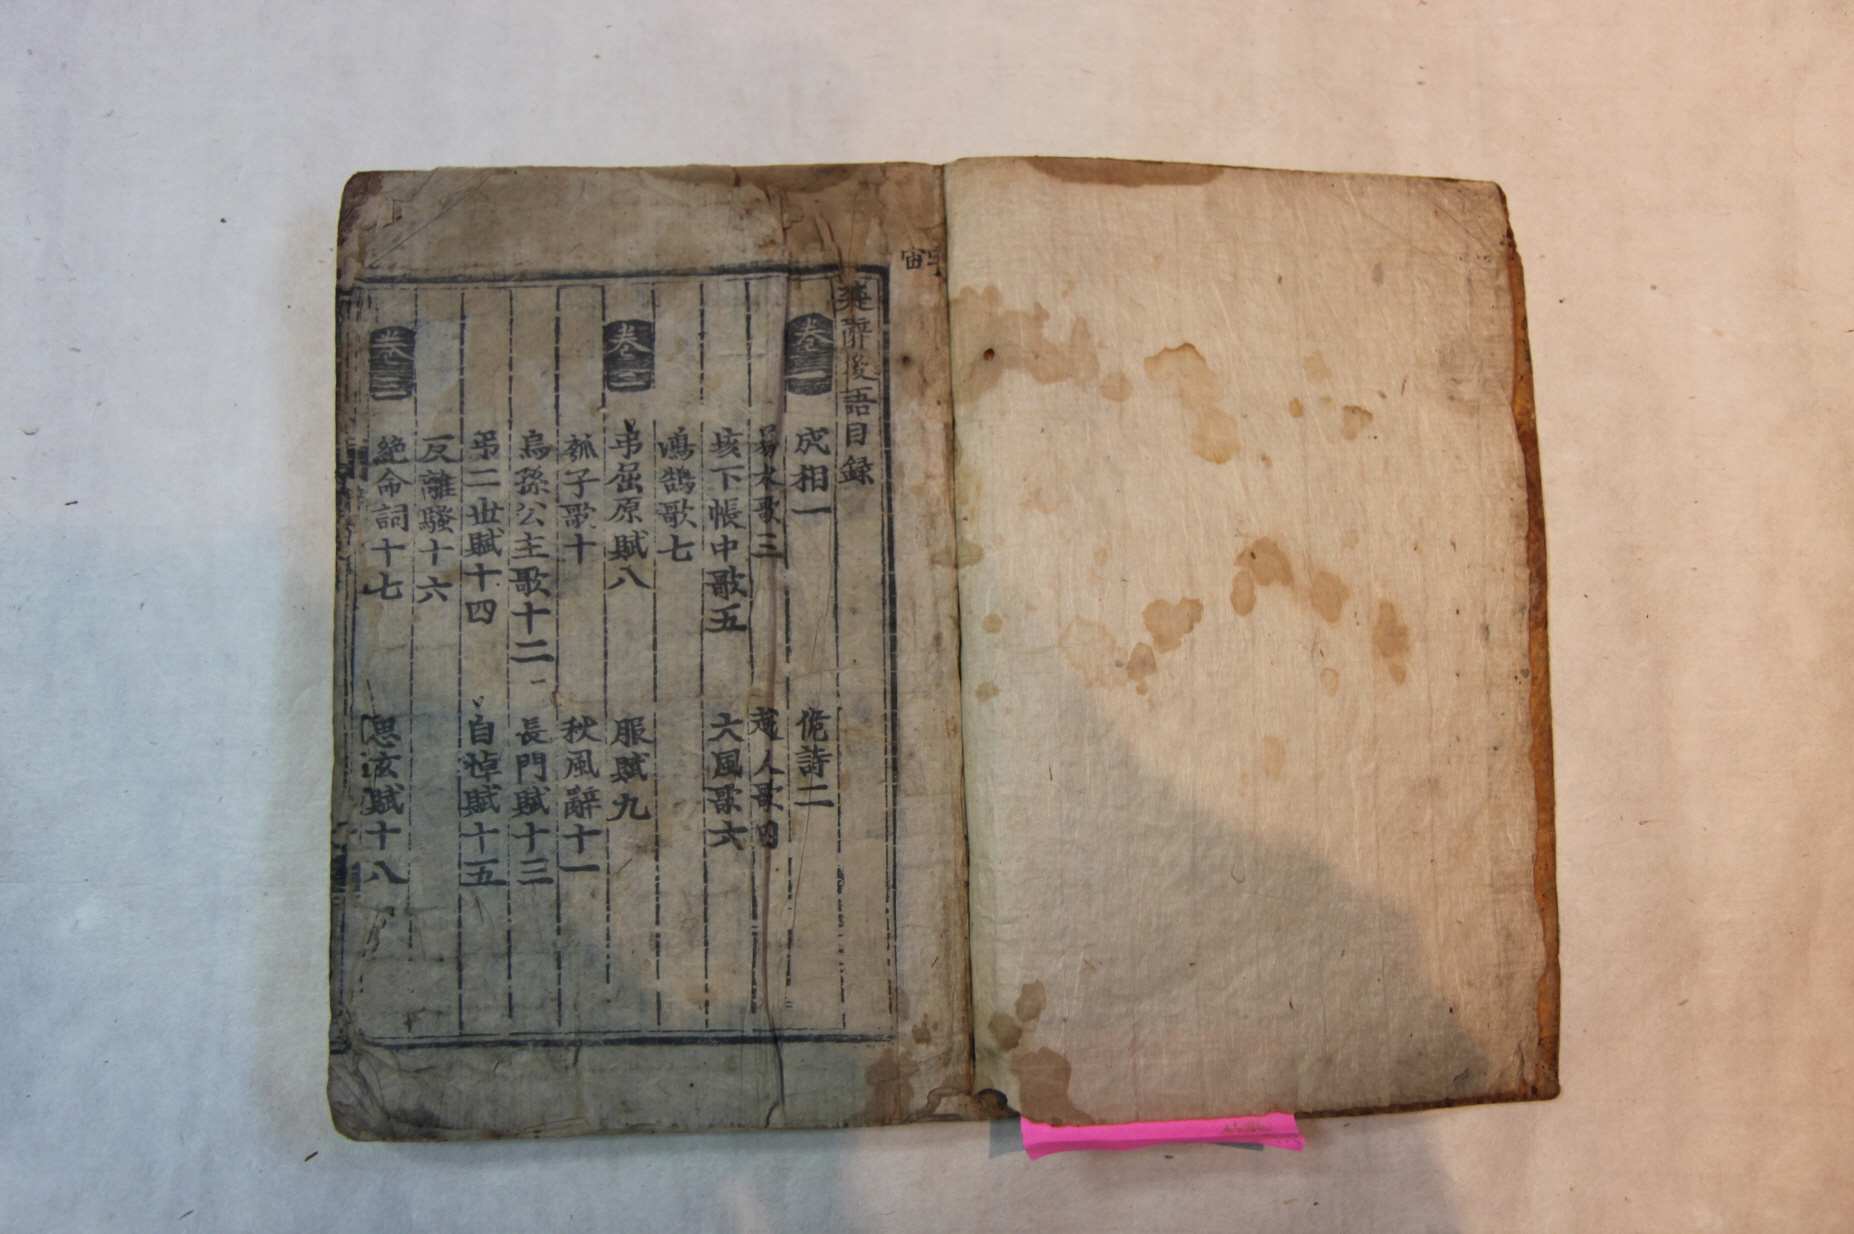 楚辭後語目録
卷一 成相一 佹詩二
易水歌三 越人歌四
垓下帳中歌五 大風歌六
鴻鵠歌七
卷二 弔屈原賦八 服賦九
瓠子歌十 秋風辭十一
烏孫公主歌十二 長門賦十三
弔二世賦十四 自悼賦十五
反離騷十六
卷三 絶命詞十七 思玄賦十八
宙